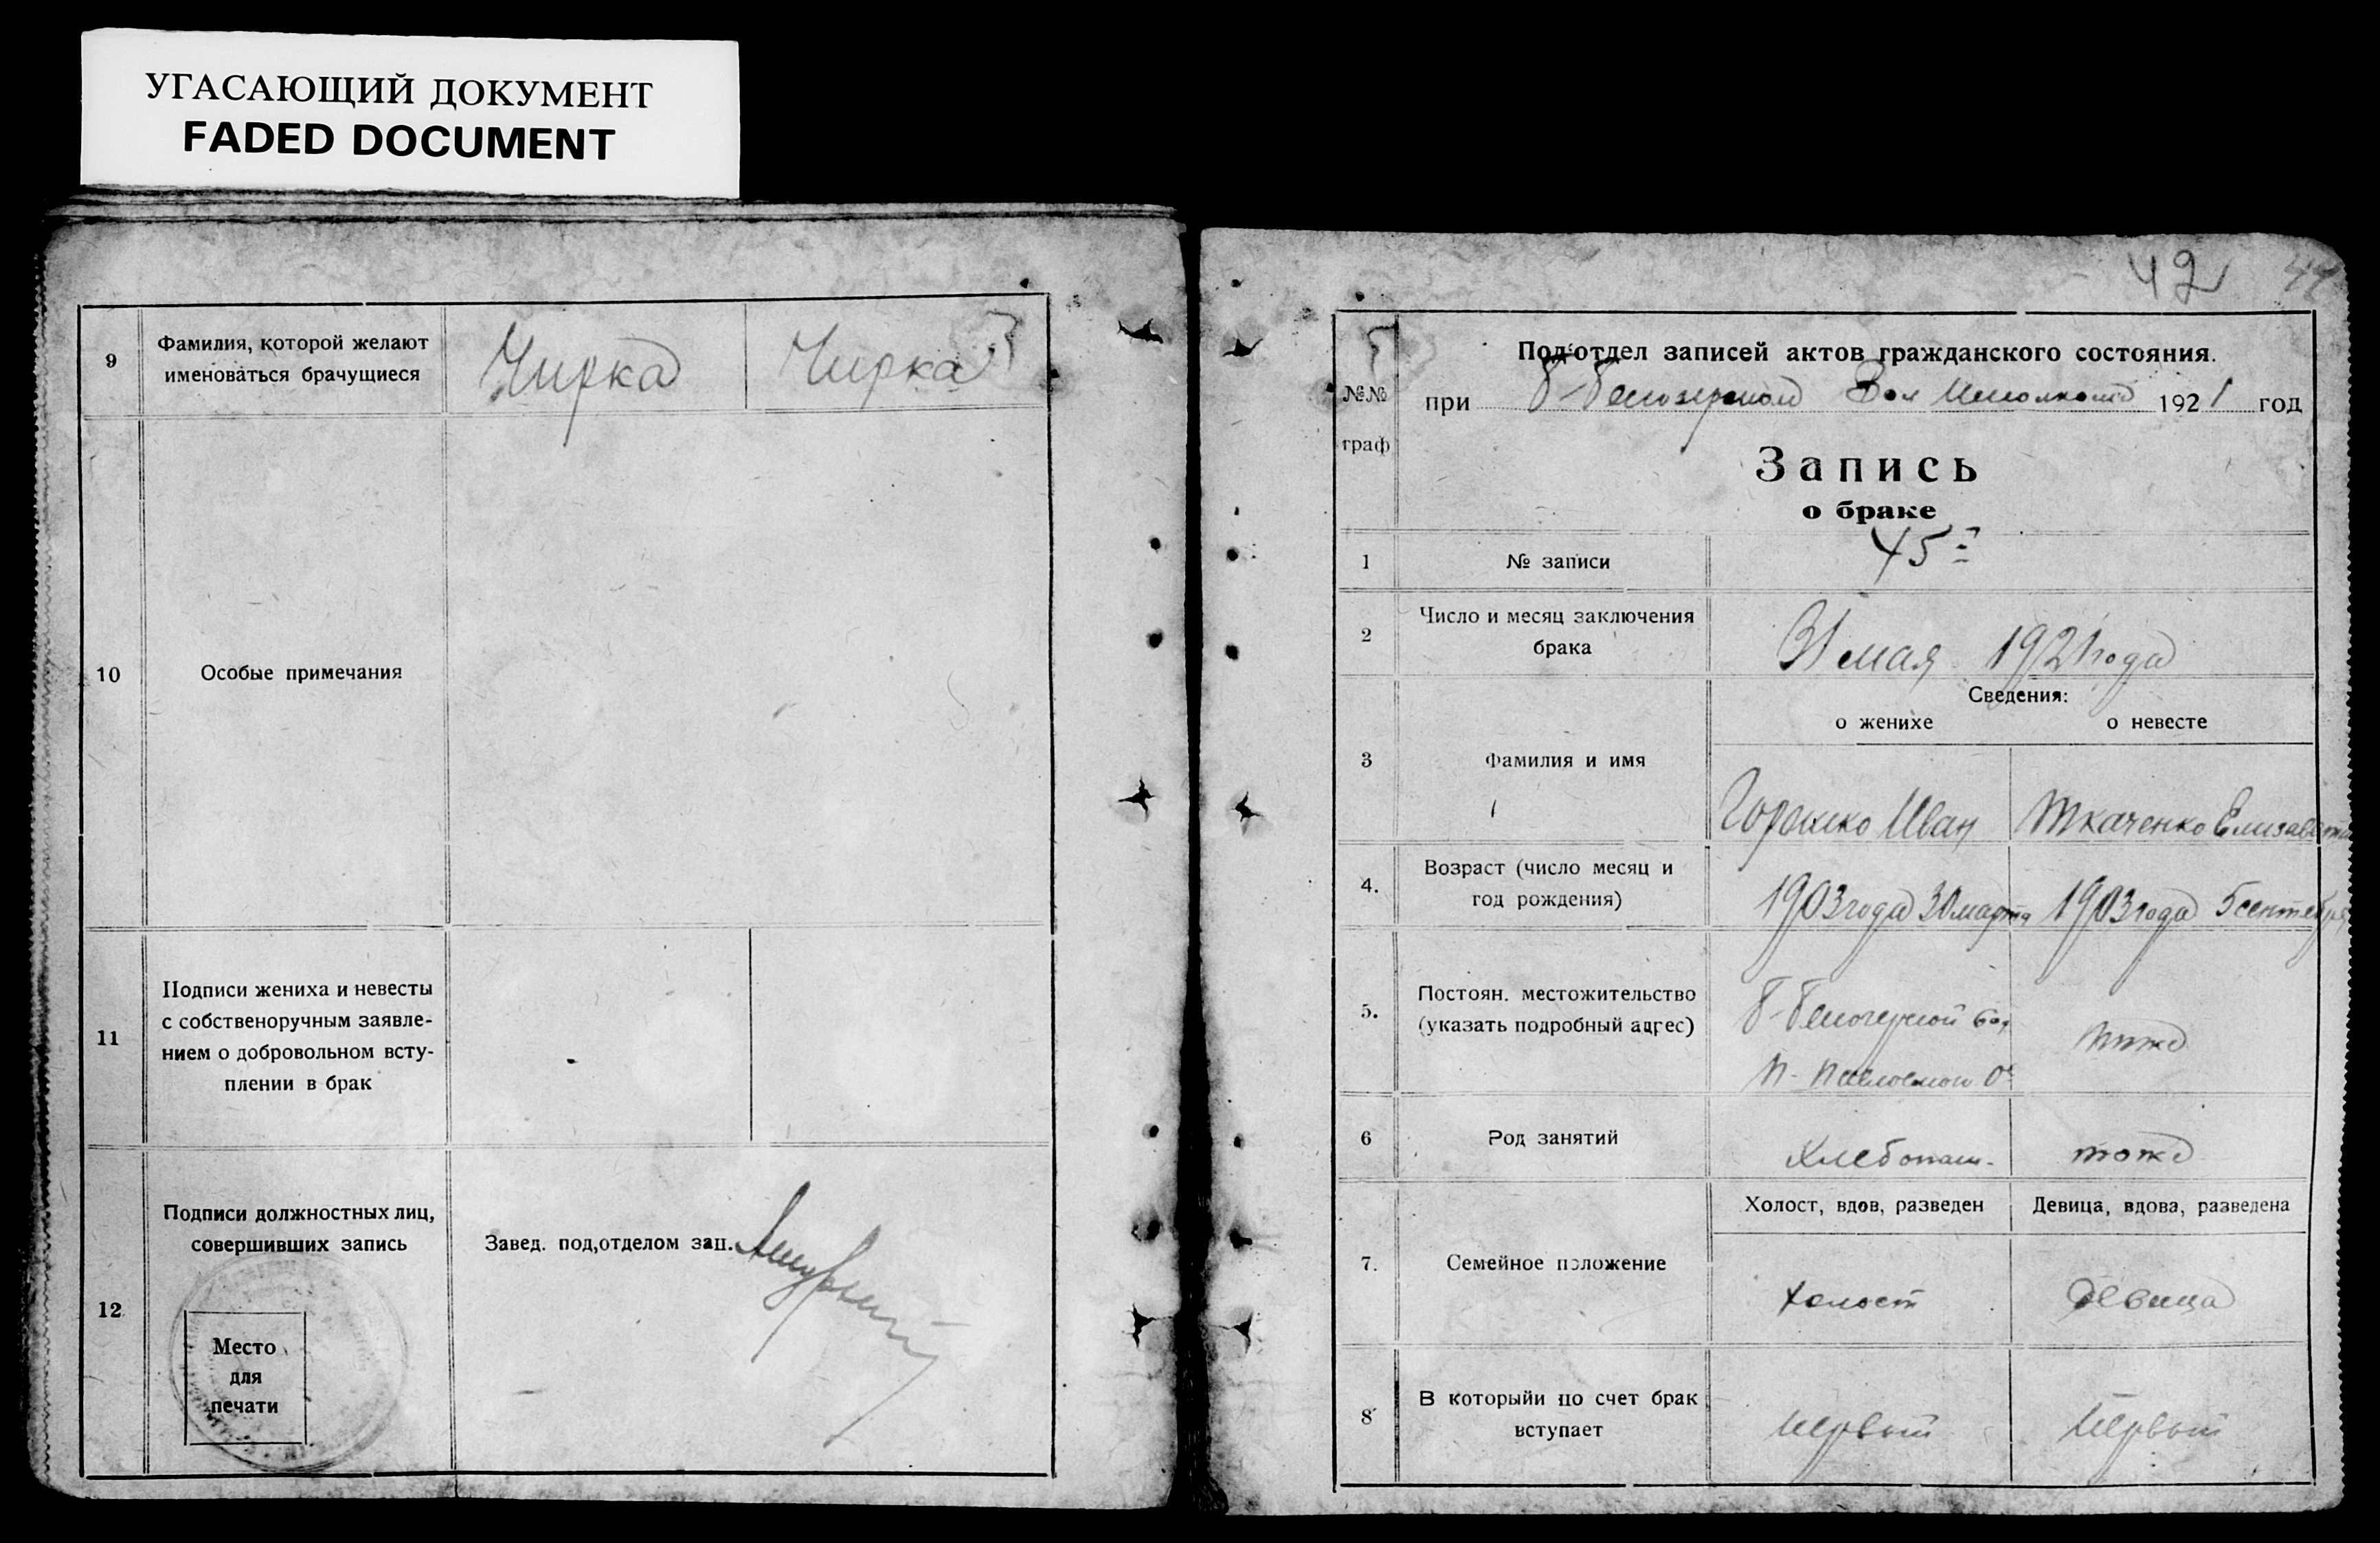 УГАСАЮЩИЙ ДОКУМЕНТ
FADED DOCUMENT
9
Фамилия, которой желают
именоваться брачущиеся
Чирка
Чирка
10
Особые примечания
11
Подписи жениха и невесты
с собственоручным заявле-
нием о добровольном всту-
плении в брак
12
Подписи должностных лиц,
совершивших запись
Завед. под,отделом зап.
Место
для
печати
42
№№
граф
Подотдел записей актов гражданского состояния.
при Б-Белозерском Вол Исполкоме 1921 год
Запись
о браке
1
№ записи
45
2
Число и месяц заключения
брака
31 мая 1921 года
Сведения:
о женихе
о невесте
3
Фамилия и имя
Горошко Иван
Ткаченко Елизавета
4.
Возраст (число месяц и
год рождения)
1903 года 30 марта
1903 года 5 сентября
5.
Постоян. местожительство
(указать подробный адрес)
Б-Белозерской вол
тоже
6
Род занятий
Хлебопаш.
тоже
7.
Семейное положение
Холост, вдов, разведен
Девица, вдова, разведена
холост
девица
8
В которыйи по счет брак
вступает
первый
первый